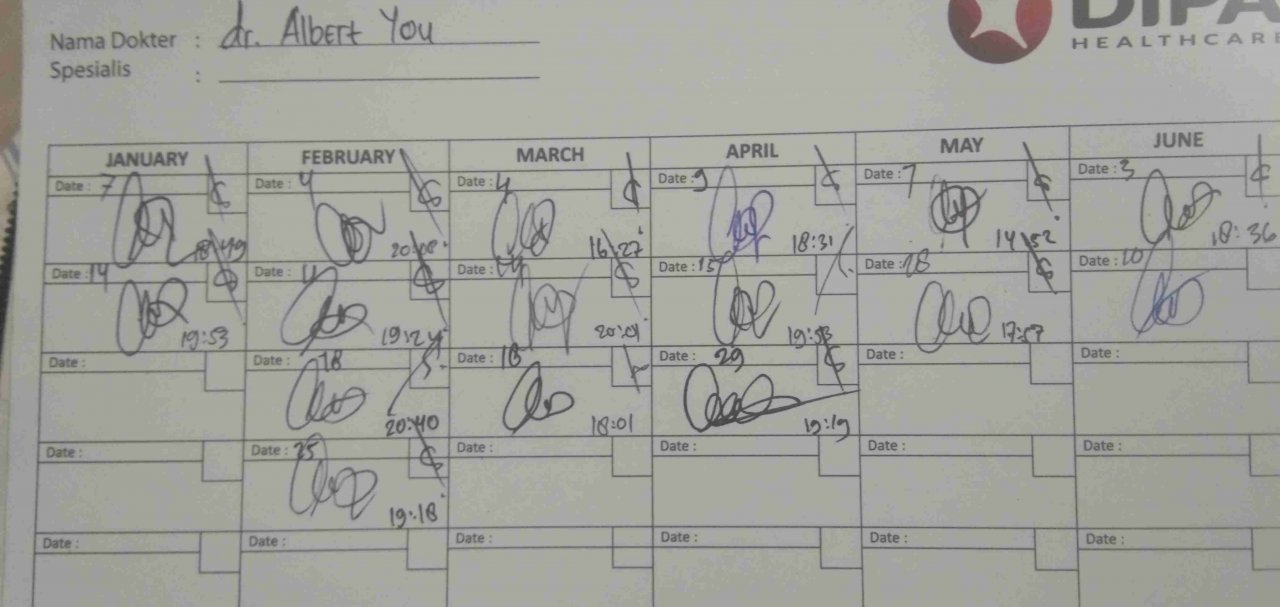 Nama Dokter : dr. Albert You
Spesialis :
DIPA
HEALTHCARE
JANUARY FEBRUARY MARCH APRIL MAY JUNE
Date : 7 Date : 4 Date : 4 Date : 9 Date : 7 Date : 3
18:49 20:08 16:27 18:31 14:52 18:36
Date : 14 Date : 11 Date : Date : 15 Date : 28 Date : 10
19:53 19:24 20:01 19:53 17:57
Date : Date : 18 Date : 18 Date : 29 Date : Date :
20:40 18:01 19:19
Date : Date : 25 Date : Date : Date : Date :
19:18
Date : Date : Date : Date : Date : Date :